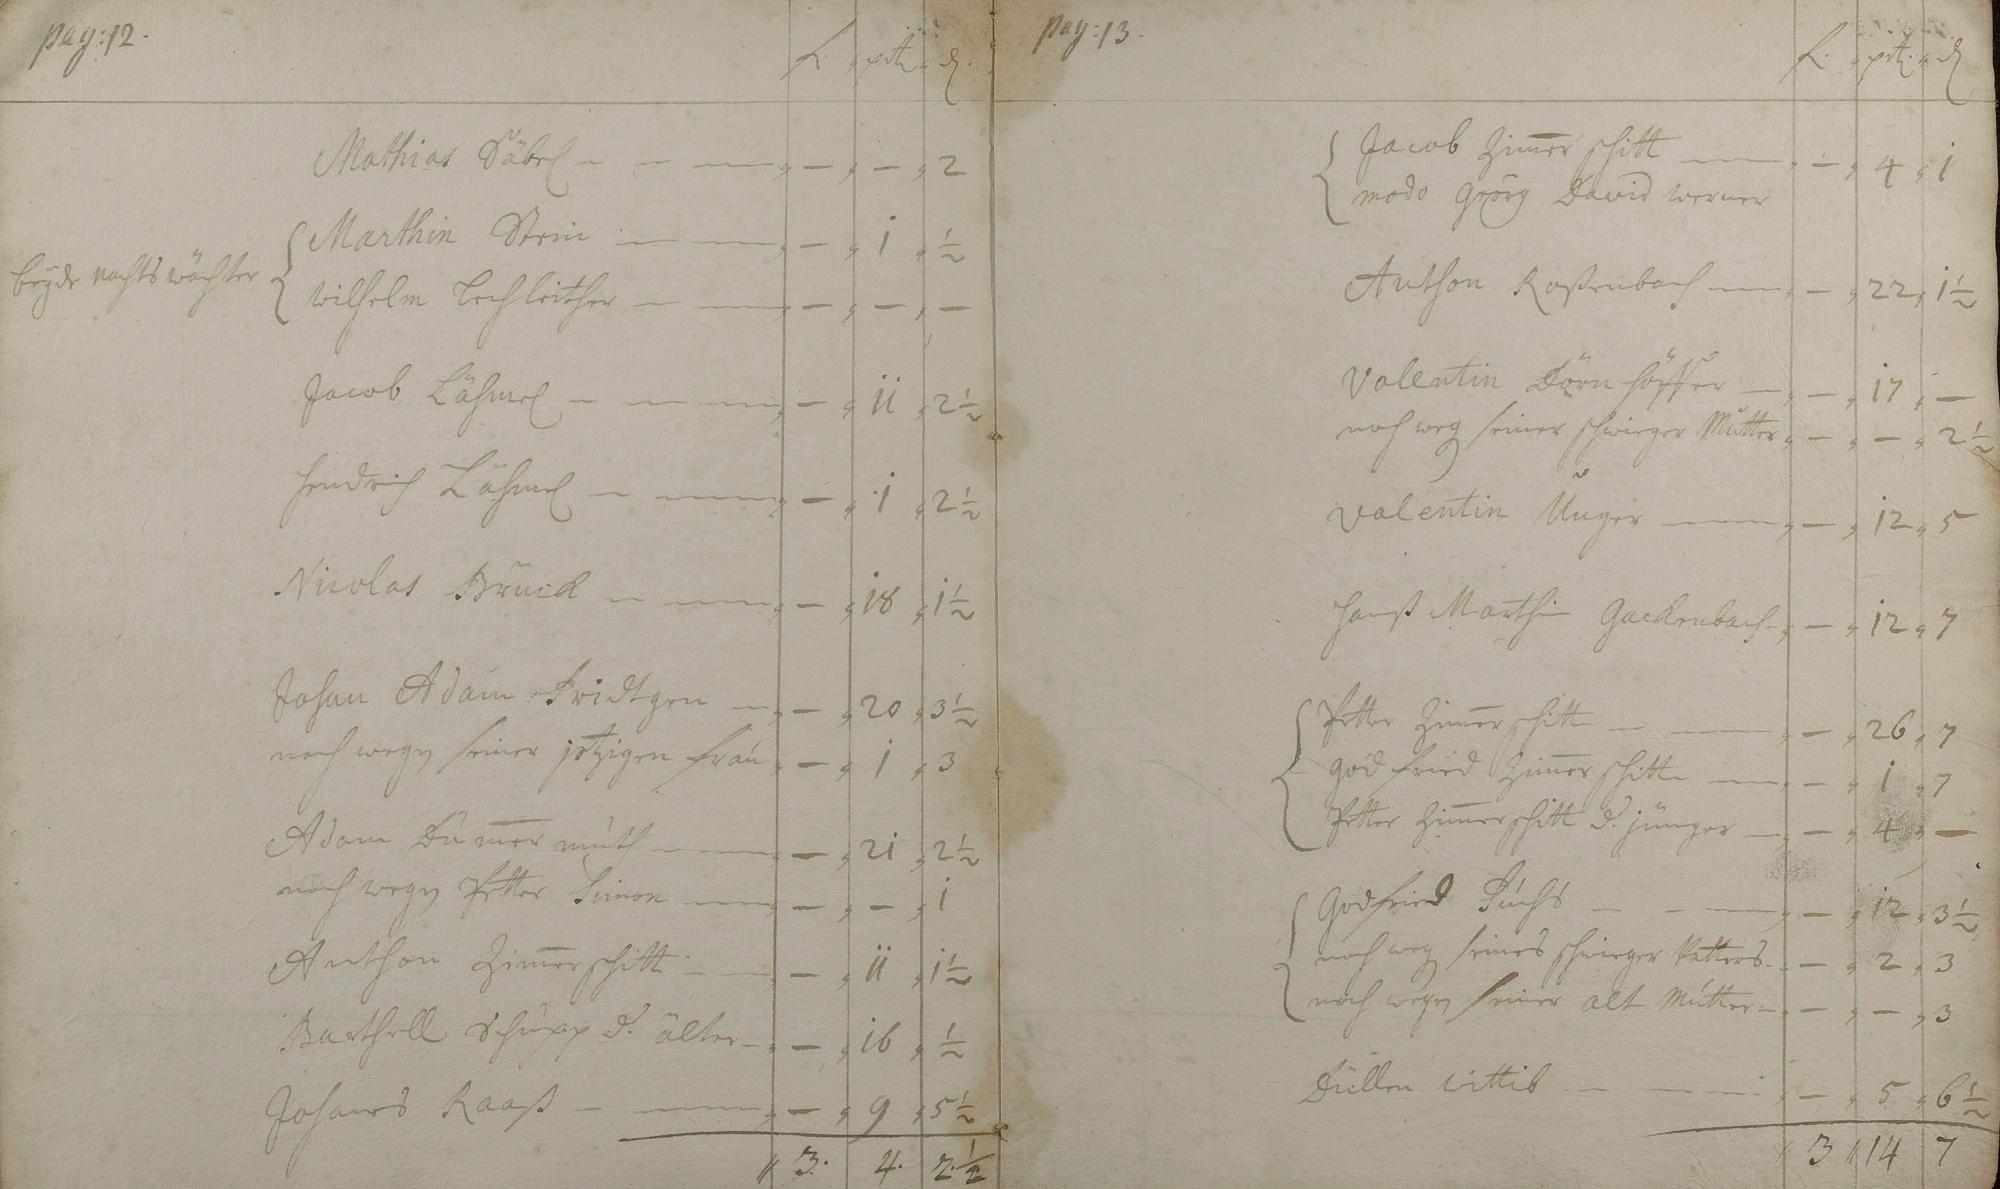 pag: 12.
f. ptz. d.
Mathias Däbel — — — " — " — " 2
beyde nachts wächter
Marthin Stein — — " — " 1 " ½
wilhelm Lechleither — — " — " — " —
Jacob Lähmel — — — " — " 11 " 2½
Hendrich Lähmel — — " — " 1 " 2½
Nicolas Brück — — " — " 18 " 1½
Johan Adam Fridtgen — " — " 20 " 3½
noch wegen seiner jetzigen frau " — " 1 " 3
Adam Dümmermuth — — " — " 21 " 2½
noch wegen Petter Simon — " — " — " 1
Anthon Zimerschitt — — " — " 11 " 1½
Barthell Schupp d. älter — " — " 16 " ½
Johanes Raaß — — " — " 9 " 5½
" 3. 4. 2.½
pag: 13.
f. " ptz. " d
Jacob Zimerschitt — " — " 4 " 1
modo Georg David werner
Anthon Roßenbach — " — " 22 " 1½
Valentin Dörnhöffer — " — " 17 " —
noch weg seiner schwieger Mutter " — " — " 2½
Valentin Unger — " — " 12 " 5
Hanß Marthin Gackenbach — " — " 12 " 7
Petter Zimerschitt — — " — " 26 " 7
Godfried Zimerschitt — " — " 1 " 7
Petter Zimerschitt d. jünger — " — " 4 " —
Godfried Fuchs — — — " — " 12 " 3½
noch weg seines schwieger Vatters " — " 2 " 3
noch wegen seiner alt Mutter " — " — " 3
Düllen wittib — — " — " 5 " 6½
" 3 " 14 7